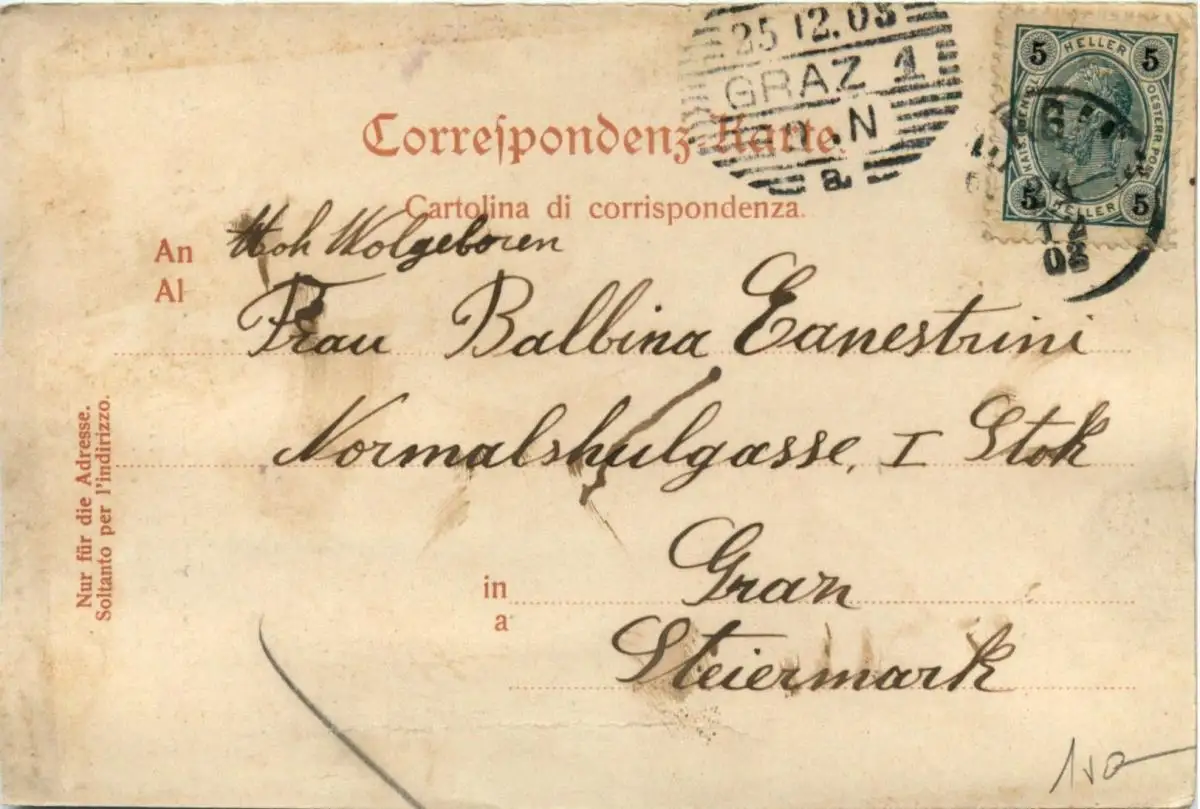 25 12.03
GRAZ 1
N
a
5 HELLER 5
KAIS. KOENIGL. OESTERR. POST
5 HELLER 5
12
03
Correspondenz-Karte.
Cartolina di corrispondenza.
An Hoh Wolgeboren
Al
Frau Balbina Canestrini
Normalshulgasse, I Stok
in Graz
a
Steiermark
Nur für die Adresse.
Soltanto per l'indirizzo.